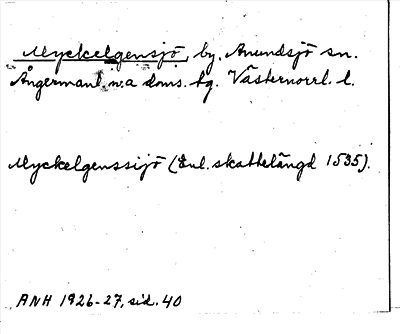 Myckelgensjö, by, Anundsjö sn.
Ångermanl. n:a doms. tg. Västernorrl. l.
Myckelgenssijö (Enl. skattelängd 1535).
ANH 1926-27, sid. 40